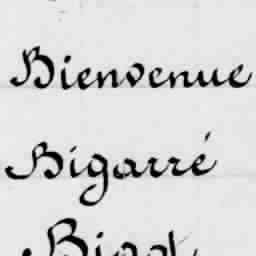 Bienvenue
Bigarré
Bigot